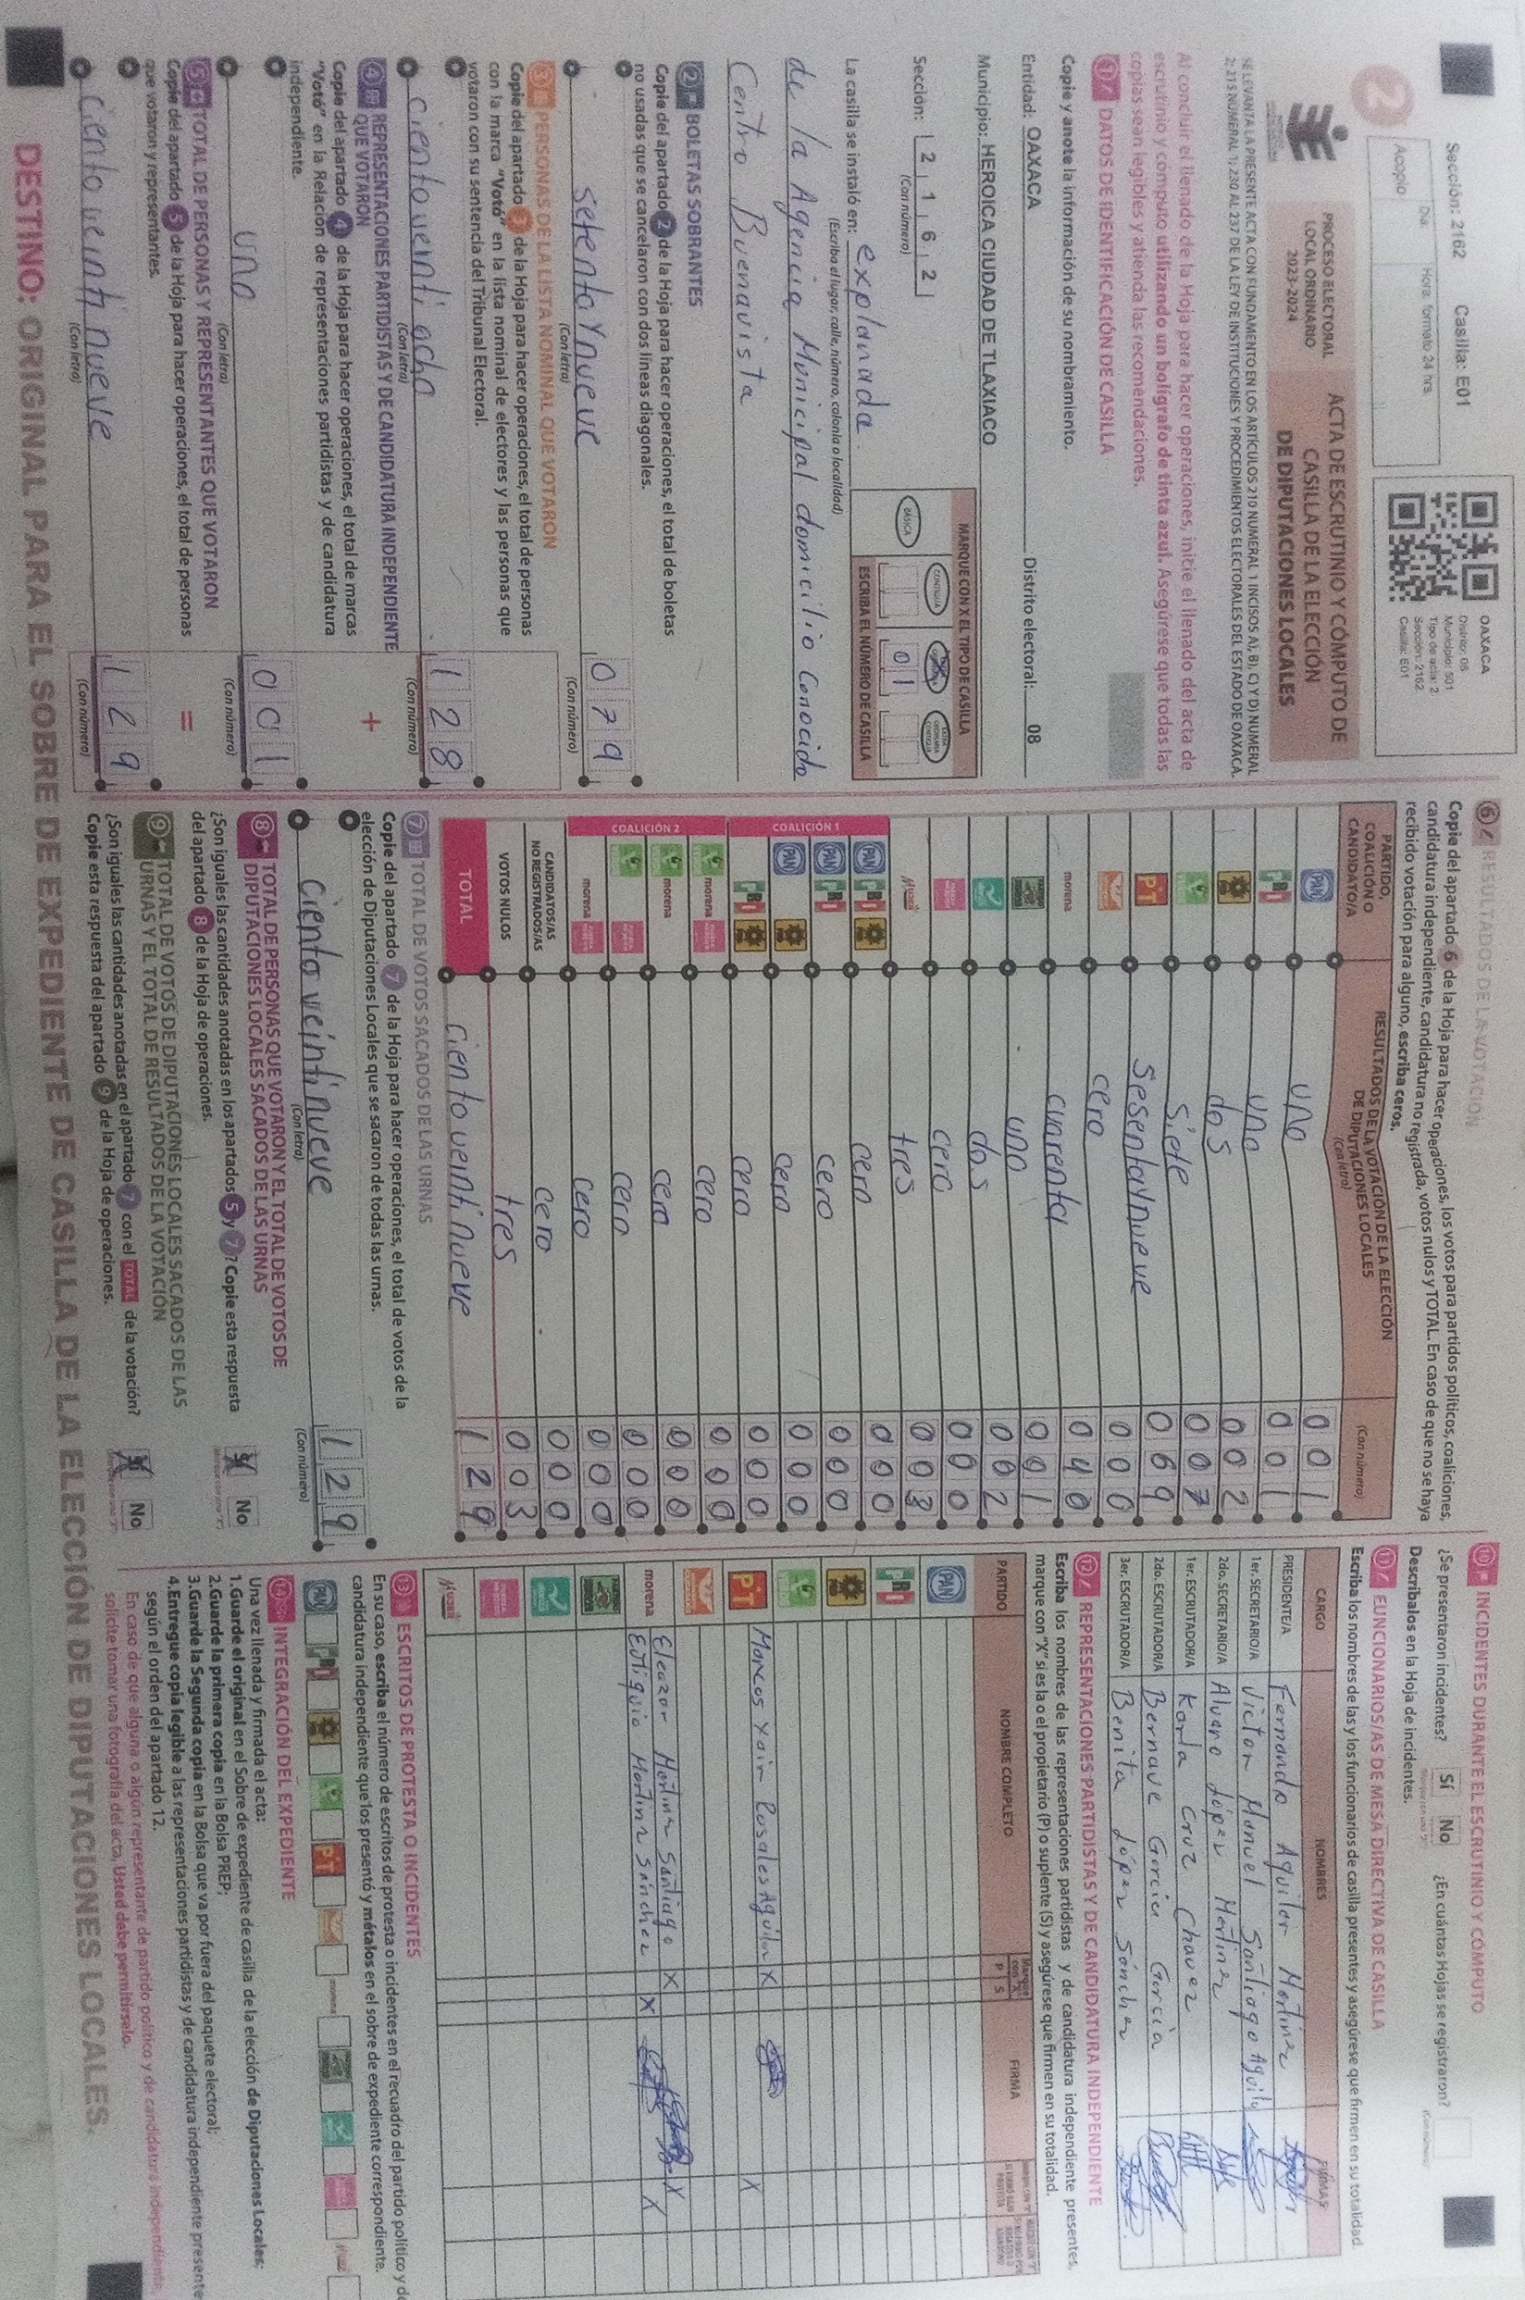 Sección: 2162 Casilla: E01
Día: Hora: formato 24 hrs.
Acopio
OAXACA
Municipio: 501
Tipo de acta: 2
Sección: 2162
Casilla: E01
2
PROCESO ELECTORAL
LOCAL ORDINARIO
2023-2024
ACTA DE ESCRUTINIO Y CÓMPUTO DE
CASILLA DE LA ELECCIÓN
DE DIPUTACIONES LOCALES
SE LEVANTA LA PRESENTE ACTA CON FUNDAMENTO EN LOS ARTÍCULOS 210 NUMERAL 1 INCISOS A), B), C) Y D) NUMERAL
2; 215 NUMERAL 1; 230 AL 237 DE LA LEY DE INSTITUCIONES Y PROCEDIMIENTOS ELECTORALES DEL ESTADO DE OAXACA.
Al concluir el llenado de la Hoja para hacer operaciones, inicie el llenado del acta de
escrutinio y cómputo utilizando un bolígrafo de tinta azul. Asegúrese que todas las
copias sean legibles y atienda las recomendaciones.
1 DATOS DE IDENTIFICACIÓN DE CASILLA
Copie y anote la información de su nombramiento.
Entidad: OAXACA Distrito electoral: 08
Municipio: HEROICA CIUDAD DE TLAXIACO
Sección: 2 1 6 2
(Con número)
MARQUE CON X EL TIPO DE CASILLA
BÁSICA CONTIGUA
0 1
ESCRIBA EL NÚMERO DE CASILLA
La casilla se instaló en: explanada.
(Escriba el lugar, calle, número, colonia o localidad)
de la Agencia Municipal domicilio conocido
Centro Buenavista
2 BOLETAS SOBRANTES
Copie del apartado 2 de la Hoja para hacer operaciones, el total de boletas
no usadas que se cancelaron con dos líneas diagonales.
setenta y nueve 0 7 9
(Con letra) (Con número)
3 PERSONAS DE LA LISTA NOMINAL QUE VOTARON
Copie del apartado 3 de la Hoja para hacer operaciones, el total de personas
con la marca "Votó" en la lista nominal de electores y las personas que
votaron con su sentencia del Tribunal Electoral.
ciento veinti ocho 1 2 8
(Con letra) (Con número)
4 REPRESENTACIONES PARTIDISTAS Y DE CANDIDATURA INDEPENDIENTE
QUE VOTARON
+
Copie del apartado 4 de la Hoja para hacer operaciones, el total de marcas
"Votó" en la Relación de representaciones partidistas y de candidatura
independiente.
uno 0 0 1
(Con letra) (Con número)
5 TOTAL DE PERSONAS Y REPRESENTANTES QUE VOTARON
=
Copie del apartado 5 de la Hoja para hacer operaciones, el total de personas
que votaron y representantes.
ciento veinti nueve 1 2 9
(Con letra) (Con número)
6 RESULTADOS DE LA VOTACIÓN
Copie del apartado 6 de la Hoja para hacer operaciones, los votos para partidos políticos, coaliciones,
candidatura independiente, candidatura no registrada, votos nulos y TOTAL. En caso de que no se haya
recibido votación para alguno, escriba ceros.
PARTIDO,
COALICIÓN O
CANDIDATO/A
RESULTADOS DE LA VOTACIÓN DE LA ELECCIÓN
DE DIPUTACIONES LOCALES
(Con letra) (Con número)
PAN uno 0 0 1
PRI uno 0 0 1
PRD dos 0 0 2
siete 0 0 7
PT sesenta y nueve 0 6 9
cero 0 0 0
morena cuarenta 0 4 0
uno 0 0 1
dos 0 0 2
cero 0 0 0
tres 0 0 3
COALICIÓN 1
PAN PRI PRD cero 0 0 0
PAN PRI cero 0 0 0
PAN PRD cero 0 0 0
PRI PRD cero 0 0 0
COALICIÓN 2
morena cero 0 0 0
morena cero 0 0 0
cero 0 0 0
morena cero 0 0 0
CANDIDATOS/AS
NO REGISTRADOS/AS cero 0 0 0
VOTOS NULOS tres 0 0 3
TOTAL ciento veinti nueve 1 2 9
7 TOTAL DE VOTOS SACADOS DE LAS URNAS
Copie del apartado 7 de la Hoja para hacer operaciones, el total de votos de la
elección de Diputaciones Locales que se sacaron de todas las urnas.
Ciento veinti nueve 1 2 9
(Con letra) (Con número)
8 TOTAL DE PERSONAS QUE VOTARON Y EL TOTAL DE VOTOS DE
DIPUTACIONES LOCALES SACADOS DE LAS URNAS
¿Son iguales las cantidades anotadas en los apartados 5 y 7? Copie esta respuesta
del apartado 8 de la Hoja de operaciones.
Sí No
9 TOTAL DE VOTOS DE DIPUTACIONES LOCALES SACADOS DE LAS
URNAS Y EL TOTAL DE RESULTADOS DE LA VOTACIÓN
¿Son iguales las cantidades anotadas en el apartado 7 con el TOTAL de la votación?
Copie esta respuesta del apartado 9 de la Hoja de operaciones.
Sí No
10 INCIDENTES DURANTE EL ESCRUTINIO Y CÓMPUTO
¿Se presentaron incidentes? Sí No ¿En cuántas Hojas se registraron?
Descríbalos en la Hoja de incidentes.
11 FUNCIONARIOS/AS DE MESA DIRECTIVA DE CASILLA
Escriba los nombres de las y los funcionarios de casilla presentes y asegúrese que firmen en su totalidad.
CARGO NOMBRES FIRMAS
PRESIDENTE/A Fernando Aguilar Martinez
1er. SECRETARIO/A Victor Manuel Santiago Aguilar
2do. SECRETARIO/A Alvaro López Martinez
1er. ESCRUTADOR/A Karla Cruz Chavez
2do. ESCRUTADOR/A Bernave Garcia Garcia
3er. ESCRUTADOR/A Benita López Sánchez
12 REPRESENTACIONES PARTIDISTAS Y DE CANDIDATURA INDEPENDIENTE
Escriba los nombres de las representaciones partidistas y de candidatura independiente presentes,
marque con "X" si es la o el propietario (P) o suplente (S) y asegúrese que firmen en su totalidad.
PARTIDO NOMBRE COMPLETO P S FIRMA
PAN
PRI
PRD
PT Marcos Yair Rosales Aguilar X X
Eleazar Martinez Santiago X X
morena Eutiquio Martinez Sánchez X X
13 ESCRITOS DE PROTESTA O INCIDENTES
En su caso, escriba el número de escritos de protesta o incidentes en el recuadro del partido político y de
candidatura independiente que los presentó y métalos en el sobre de expediente correspondiente.
PAN PRI PRD PT morena
14 INTEGRACIÓN DEL EXPEDIENTE
Una vez llenada y firmada el acta:
1.Guarde el original en el Sobre de expediente de casilla de la elección de Diputaciones Locales;
2.Guarde la primera copia en la Bolsa PREP;
3.Guarde la Segunda copia en la Bolsa que va por fuera del paquete electoral;
4.Entregue copia legible a las representaciones partidistas y de candidatura independiente presentes
según el orden del apartado 12.
En caso de que alguna o algún representante de partido político y de candidatura independiente
solicite tomar una fotografía del acta, Usted debe permitírselo.
DESTINO: ORIGINAL PARA EL SOBRE DE EXPEDIENTE DE CASILLA DE LA ELECCIÓN DE DIPUTACIONES LOCALES.